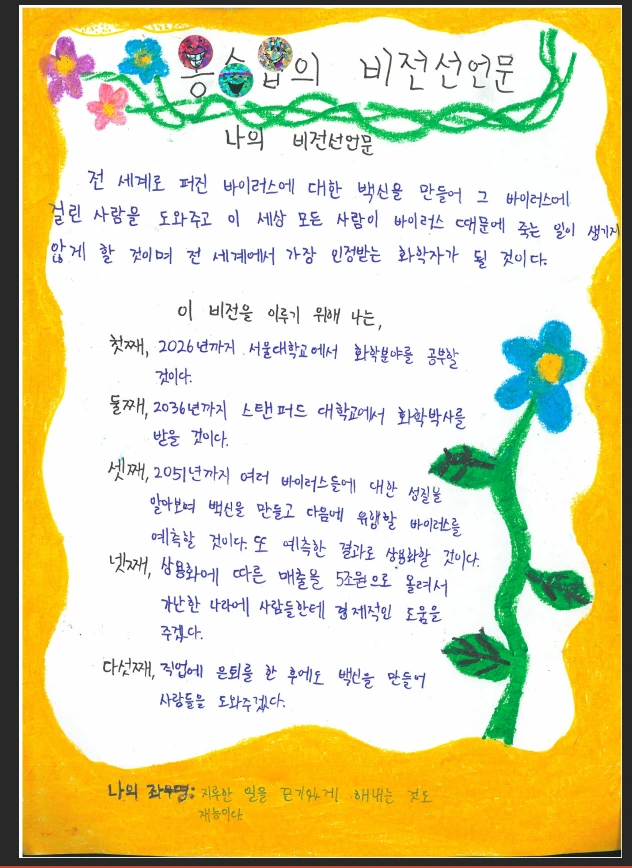 의 비전선언문
나의 비전선언문
전 세계로 퍼진 바이러스에 대한 백신을 만들어 그 바이러스에
걸린 사람을 도와주고 이 세상 모든 사람이 바이러스 때문에 죽는 일이 생기지
않게 할 것이며 전 세계에서 가장 인정받는 화학자가 될 것이다.
이 비전을 이루기 위해 나는,
첫째, 2026년까지 서울대학교에서 화학분야를 공부할
것이다.
둘째, 2036년까지 스탠퍼드 대학교에서 화학박사를
받을 것이다.
셋째, 2051년까지 여러 바이러스들에 대한 성질을
알아보며 백신을 만들고 다음에 유행할 바이러스를
예측할 것이다. 또 예측한 결과로 상용화할 것이다.
넷째, 상용화에 따른 매출을 5조원으로 올려서
가난한 나라에 사람들한테 경제적인 도움을
주겠다.
다섯째, 직업에 은퇴를 한 후에도 백신을 만들어
사람들을 도와주겠다.
나의 좌우명: 지루한 일을 끈기있게 해내는 것도
재능이다